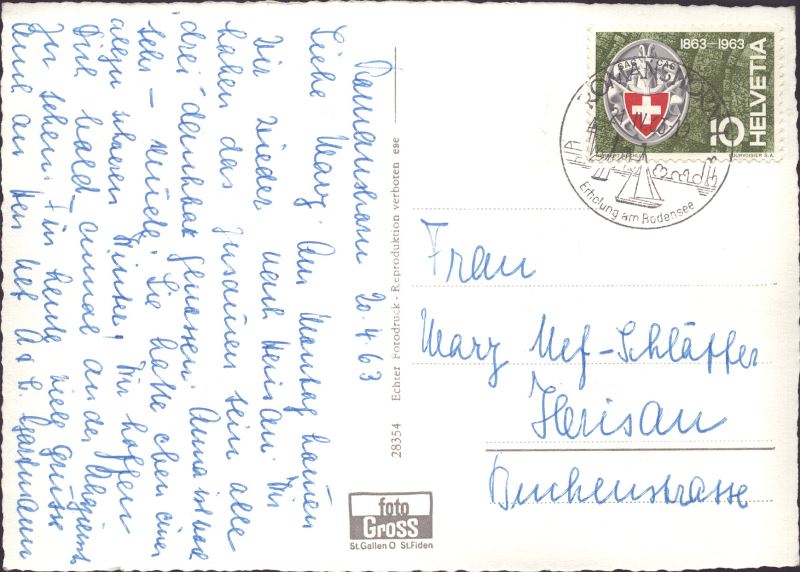 Romanshorn 20.4.63
Liebe Mary! Am Montag kamen
Wir wieder nach Herisau. Wir
haben das zusammen sein alle
drei dankbar genossen. Anna ist noch
sehr – müede! Sie hatte eben einen
allzu schweren Winter! Wir hoffen
Dich bald einmal an der
zu sehen! Für heute viele Grüsse
Dir an
1863–1963
HELVETIA
10
SAC CAS
COURVOISIER S.A.
ROMANSHORN
Erholung am Bodensee
Frau
Mary Nef-Schläpfer
Herisau
Buchenstrasse
28354 Echter Fotodruck - Reproduktion verboten ese
foto
Gross
St.Gallen O St.Fiden